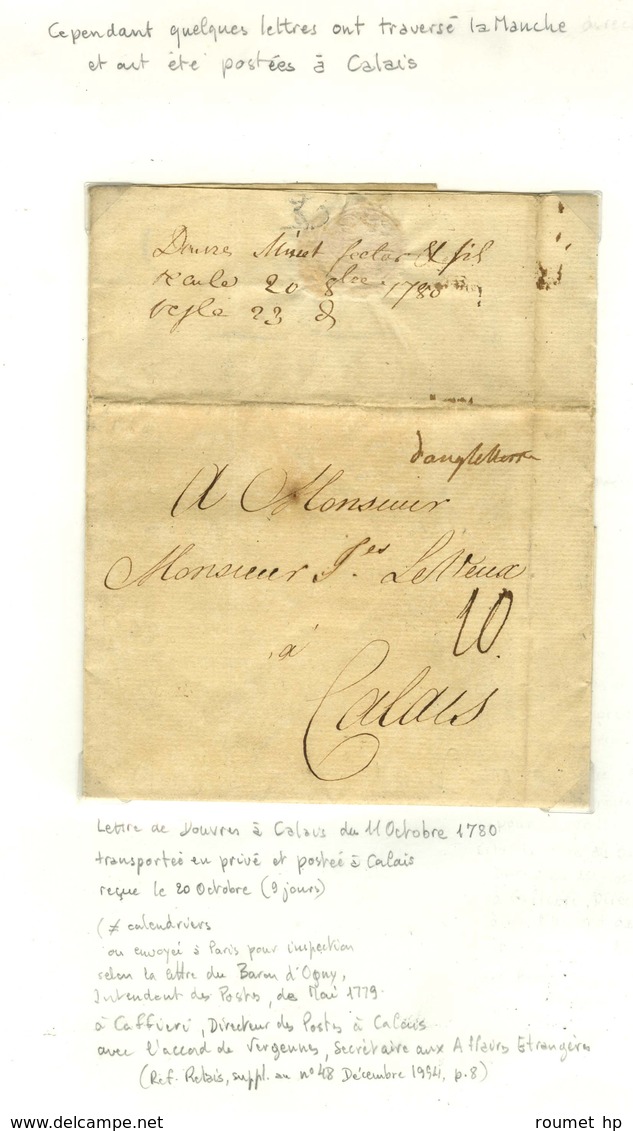 Cependant quelques lettres ont traversé la Manche
et ont été postées à Calais
Douvres Minet fector & fils
20 8bre 1780
23 d
d'angleterre
A Monsieur
Monsieur Jes LeVeux
10
à
Calais
Lettre de Douvres à Calais du 11 Octobre 1780
transportée en privé et postée à Calais
reçue le 20 Octobre (9 jours)
(≠ calendriers
ou envoyé à Paris pour inspection
selon la lettre du Baron d'Ogny,
Intendant des Postes, de Mai 1779
à Caffieri, Directeur des Postes à Calais
avec l'accord de Vergennes, Secrétaire aux Affaires Etrangères
(Ref. Relais, suppl. au n° 48 Décembre 1994, p.8)
roumet hp